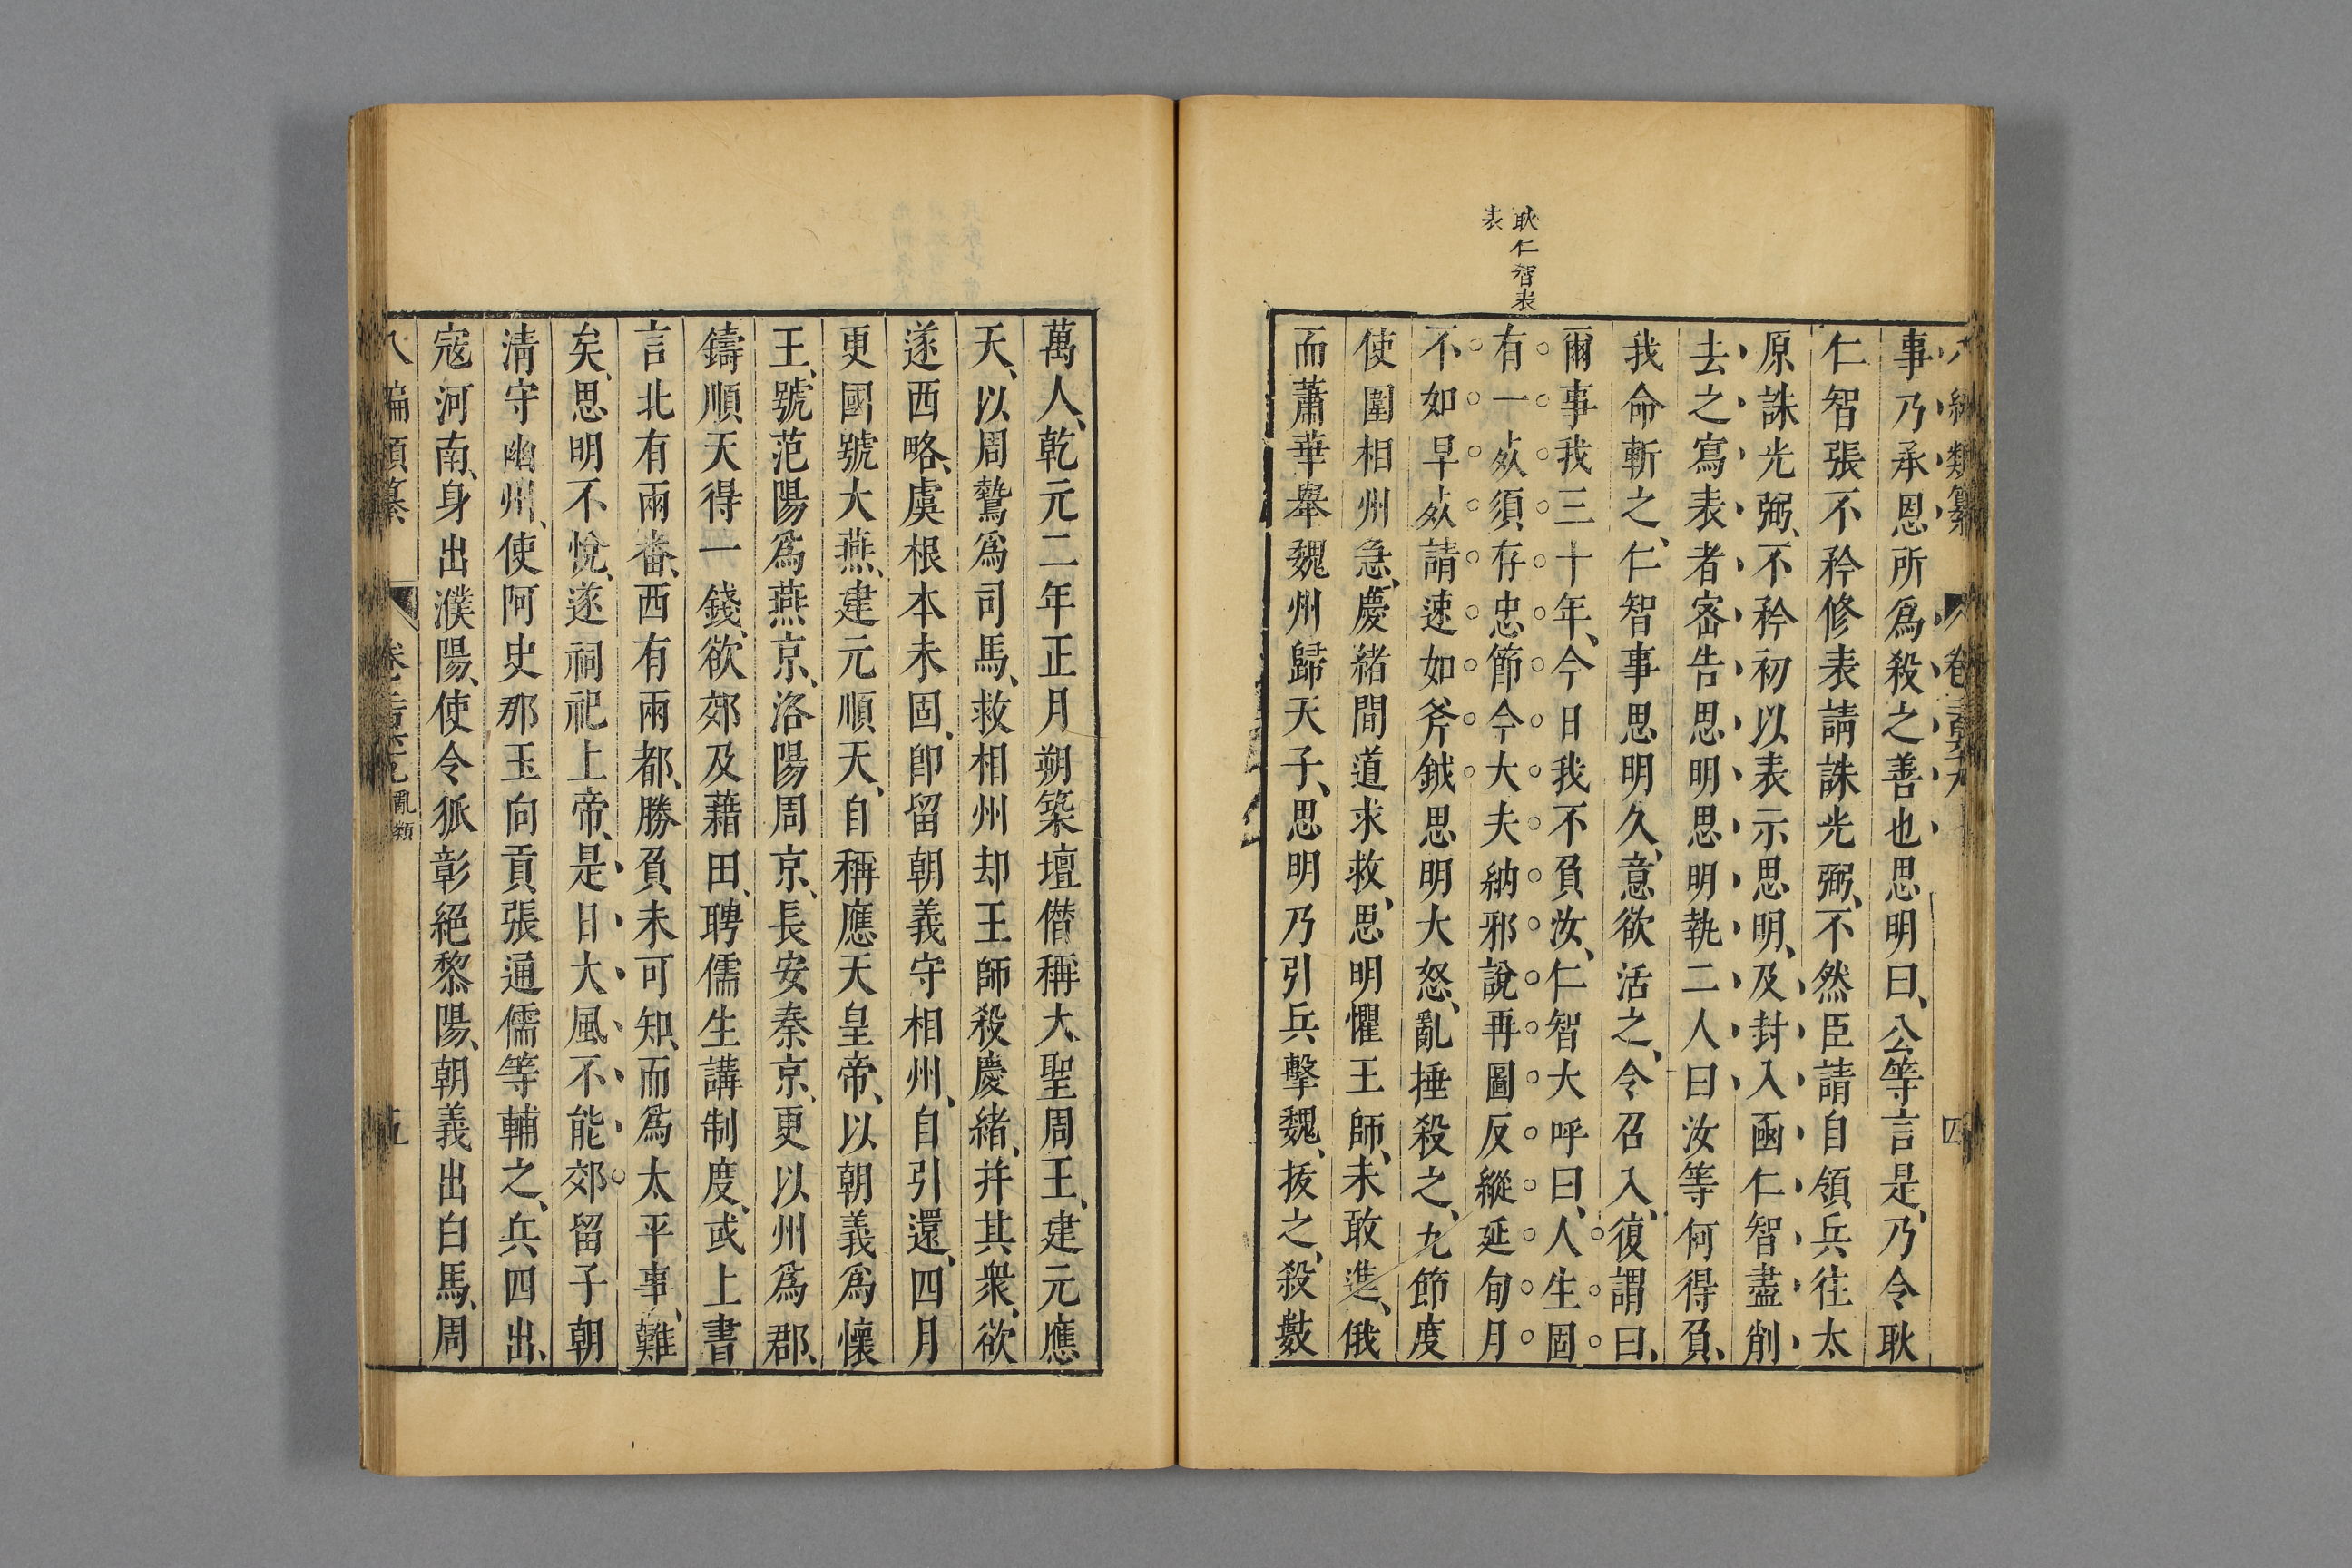 耿仁智表
表
事乃承恩所爲殺之善也思明曰公等言是乃令耿
仁智張不矜修表請誅光弼不然臣請自領兵往太
原誅光弼不矜初以表示思明及封入函仁智盡削
去之寫表者密告思明思明執二人曰汝等何得負
我命斬之仁智事思明久意欲活之令召入復謂曰
爾事我三十年今日我不負汝仁智大呼曰人生固
有一㱕須存忠節今大夫納邪說再圖反縱延旬月
不如早㱕請速如斧鉞思明大怒亂捶殺之九節度
使圍相州急慶緒間道求救思明懼王師未敢進俄
而蕭華舉魏州歸天子思明乃引兵擊魏拔之殺數
萬人乾元二年正月朔築壇僭稱大聖周王建元應
天以周贄爲司馬救相州却王師殺慶緒并其衆欲
遂西略虞根本未固卽留朝義守相州自引還四月
更國號大燕建元順天自稱應天皇帝以朝義爲懷
王號范陽爲燕京洛陽周京長安秦京更以州爲郡
鑄順天得一錢欲郊及藉田聘儒生講制度或上書
言北有兩番西有兩都勝負未可知而爲太平事難
矣思明不悅遂祠祀上帝是日大風不能郊留子朝
清守幽州使阿史那玉向貢張通儒等輔之兵四出
寇河南身出濮陽使令狐彰絕黎陽朝義出白馬周
八編類纂
亂類